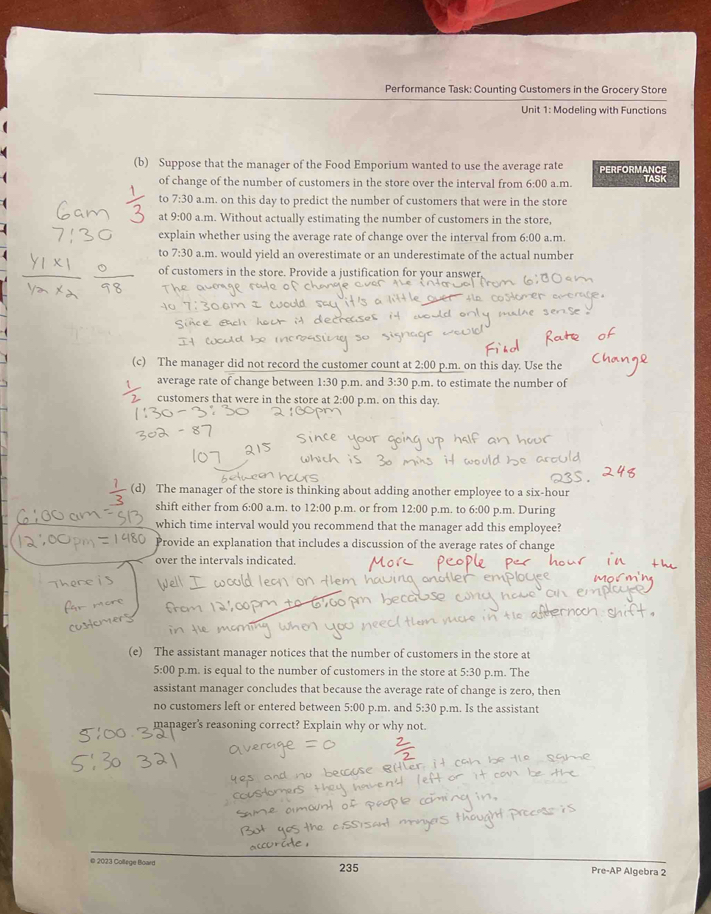 Performance Task: Counting Customers in the Grocery Store
Unit 1: Modeling with Functions
PERFORMANCE
TASK
(b) Suppose that the manager of the Food Emporium wanted to use the average rate
of change of the number of customers in the store over the interval from 6:00 a.m.
to 7:30 a.m. on this day to predict the number of customers that were in the store
at 9:00 a.m. Without actually estimating the number of customers in the store,
explain whether using the average rate of change over the interval from 6:00 a.m.
to 7:30 a.m. would yield an overestimate or an underestimate of the actual number
of customers in the store. Provide a justification for your answer.
1/3
6am
7:30
y1 x1
y2 x2
0
98
The average rate of change over the interval from 6:00am
to 7:30am I would say it's a little over the costomer average.
Since each hour it decreases it would only make sense.
It would be increasing so signage would
Find Rate of
Change
(c) The manager did not record the customer count at 2:00 p.m. on this day. Use the
average rate of change between 1:30 p.m. and 3:30 p.m. to estimate the number of
customers that were in the store at 2:00 p.m. on this day.
1/2
1:30-3:30 2:00pm
302 - 87
107 215
between hours
since your going up half an hour
which is 30 mins it would be arould
235. 248
1/3
(d) The manager of the store is thinking about adding another employee to a six-hour
shift either from 6:00 a.m. to 12:00 p.m. or from 12:00 p.m. to 6:00 p.m. During
which time interval would you recommend that the manager add this employee?
Provide an explanation that includes a discussion of the average rates of change
over the intervals indicated.
6:00am=513
12:00pm=1480
There is
far more
customers
More people per hour in the
morning
Well I would lean on them having another employee
from 12:00pm to 6:00pm because why have an employee
in the morning when you need them more in the afternoon shift.
(e) The assistant manager notices that the number of customers in the store at
5:00 p.m. is equal to the number of customers in the store at 5:30 p.m. The
assistant manager concludes that because the average rate of change is zero, then
no customers left or entered between 5:00 p.m. and 5:30 p.m. Is the assistant
manager's reasoning correct? Explain why or why not.
5:00 321
5:30 321
average = 0
2/2
yes and no because either it can be the same
coustomers they haven't left or it can be the
same amount of people coming in.
But yes the assisant mangers thought process is
accurate.
© 2023 College Board
235
Pre-AP Algebra 2